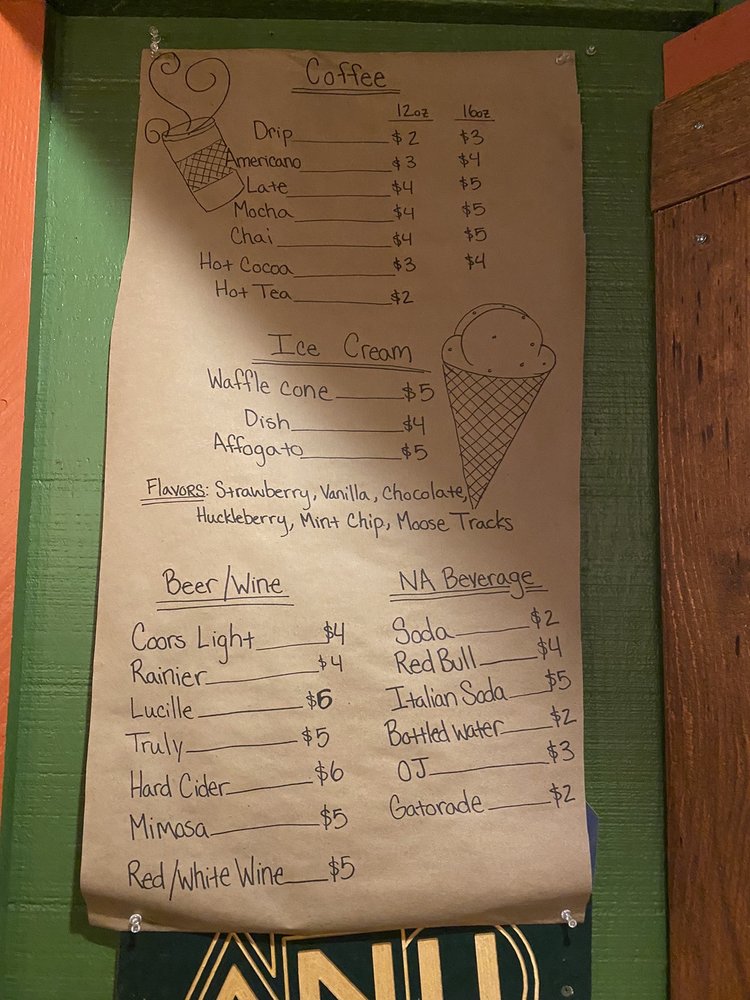 Coffee
12oz 16oz
Drip $2 $3
Americano $3 $4
Late $4 $5
Mocha $4 $5
Chai $4 $5
Hot Cocoa $3 $4
Hot Tea $2
Ice Cream
Waffle cone $5
Dish $4
Affogato $5
Flavors: Strawberry, Vanilla, Chocolate,
Huckleberry, Mint Chip, Moose Tracks
Beer/Wine
Coors Light $4
Rainier $4
Lucille $6
Truly $5
Hard Cider $6
Mimosa $5
Red/White Wine $5
NA Beverage
Soda $2
Red Bull $4
Italian Soda $5
Bottled Water $2
OJ $3
Gatorade $2